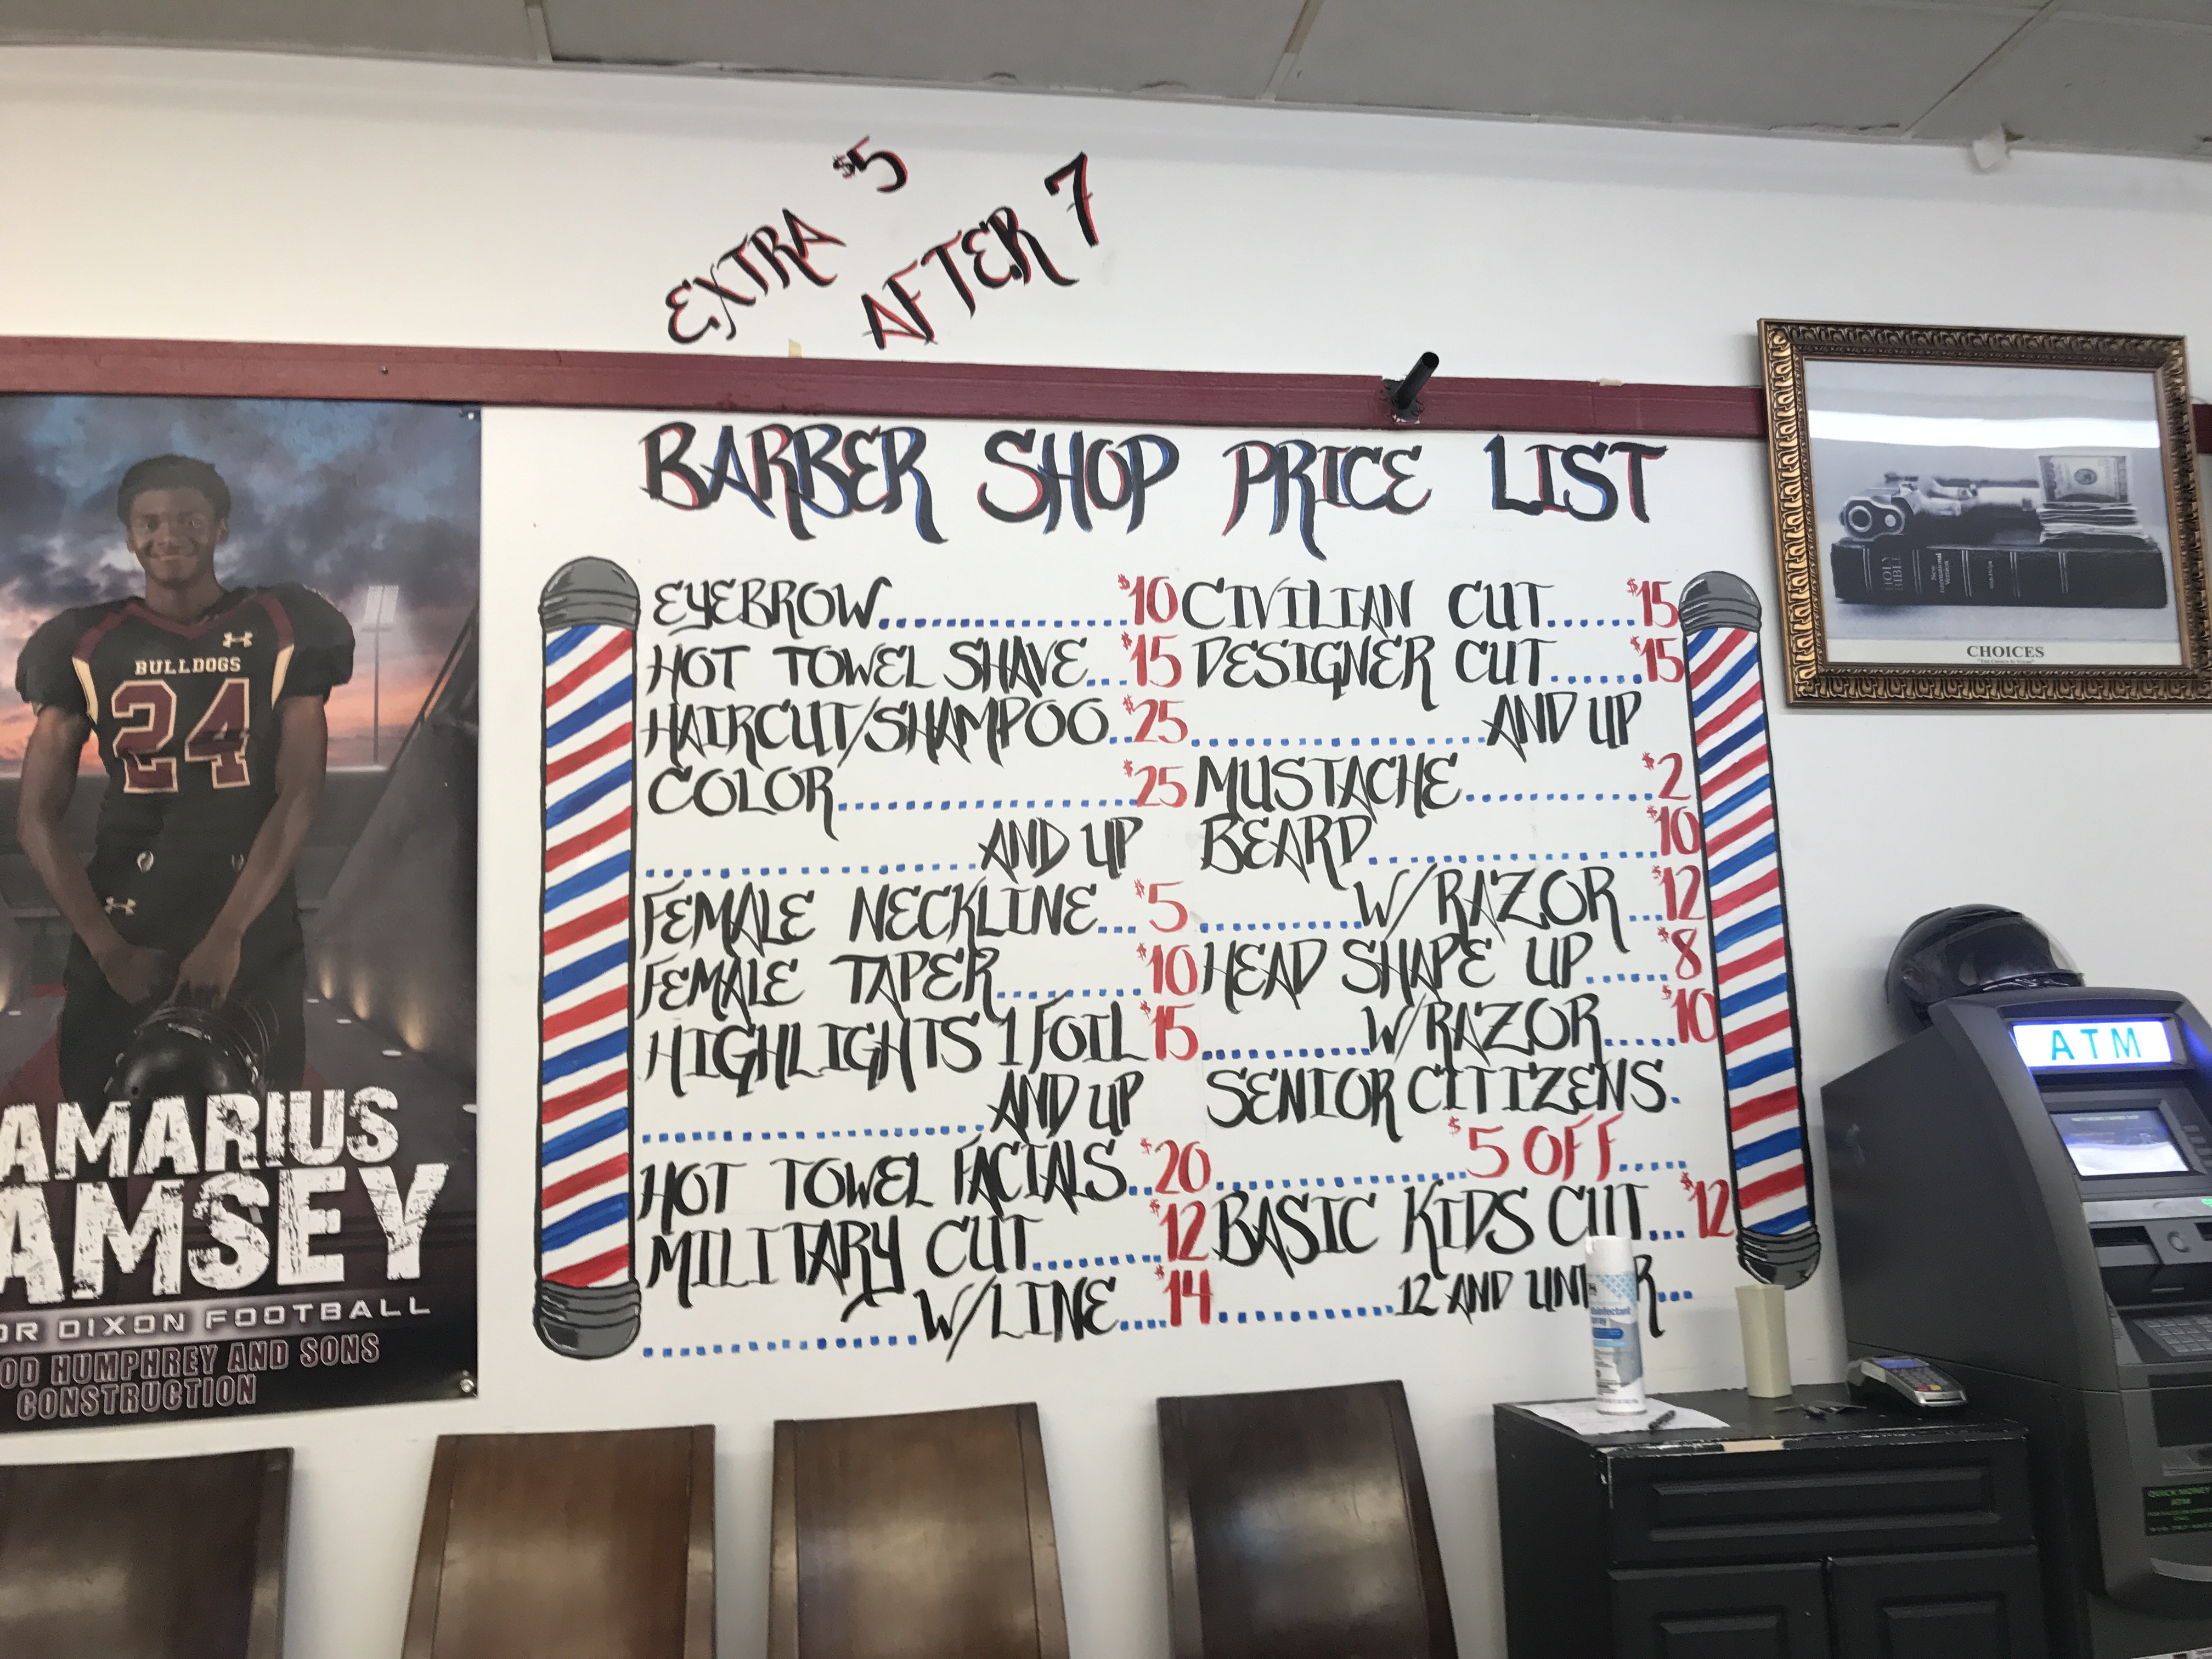 EXTRA $5
AFTER 7
BARBER SHOP PRICE LIST
EYEBROW..................$10
HOT TOWEL SHAVE...$15
HAIRCUT/SHAMPOO..$25
COLOR......................$25
........................AND UP
FEMALE NECKLINE...$5
FEMALE TAPER..........$10
HIGHLIGHTS 1 FOIL $15
........................AND UP
HOT TOWEL FACIALS..$20
MILITARY CUT.......$12
..................W/LINE....$14
CIVILIAN CUT......$15
DESIGNER CUT......$15
....................AND UP
MUSTACHE.............$2
BEARD....................$10
...........W/RAZOR...$12
HEAD SHAPE UP.....$8
...........W/RAZOR....$10
SENIOR CITIZENS.
.................$5 OFF....
BASIC KIDS CUT...$12
............12 AND UNDER...
BULLDOGS
24
AMARIUS
AMSEY
OR DIXON FOOTBALL
OD HUMPHREY AND SONS
CONSTRUCTION
HOLY
BIBLE
New
International
Version
CHOICES
ATM
QUICK MONEY
ATM